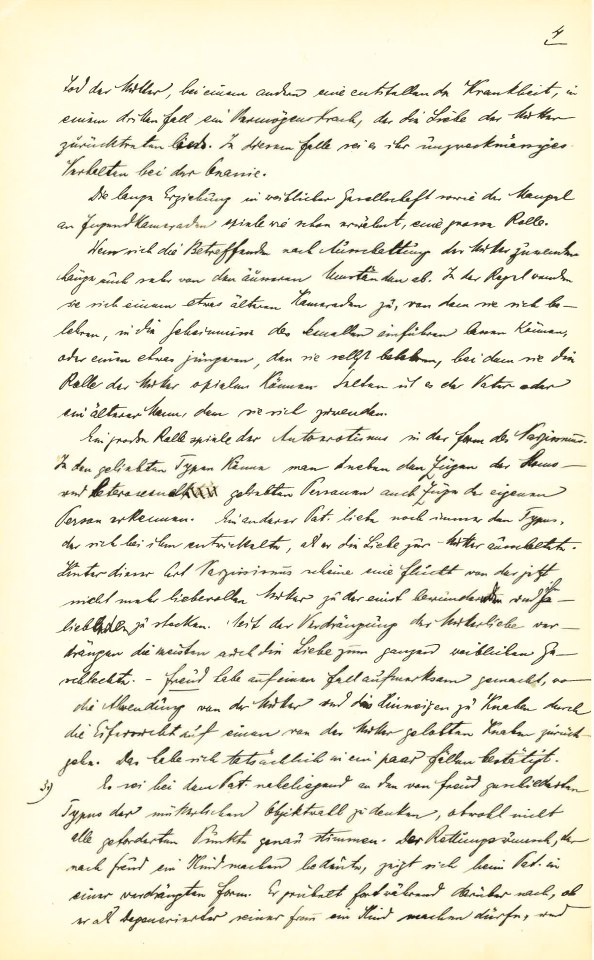 4
Tod der Mutter, bei einem andern eine entstellende Krankheit, in
einem dritten Fall ein Vermögenskrach, der die Liebe der Mutter
zurücktreten liess. In diesem Falle sei es ihr unzweckmässiges
Verhalten bei der Onanie.
Die lange Erziehung in weiblicher Gesellschaft sowie der Mangel
an Jugendkameraden spiele wie schon erwähnt, eine grosse Rolle.
Wem sich die Betreffenden nach Ausschaltung der Mutter zuwenden
hänge auch sehr von den äusseren Umständen ab. In der Regel wenden
sie sich einem etwas älteren Kameraden zu, von dem sie sich be-
lehren, in die Geheimnisse des Sexuallen einführen lassen können,
oder einem etwas jüngeren, den sie selbst belehren, bei dem sie die
Rolle der Mutter spielen können. Selten ist es der Vater oder
ein älterer Mann, dem sie sich zuwenden.
Ein grosse Rolle spiele der Autoerotismus in der Form des Narzissmus.
In den geliebten Typen könne man neben den Zügen der homo-
und heterosexuell geliebten Personen auch Züge der eigenen
Person erkennen. Ein anderer Pat. liebe noch immer den Typus,
der sich bei ihm entwickelte, als er die Liebe zur Mutter ausschaltete.
Hinter dieser Art Narzissmus scheine eine Flucht von der jetzt
nicht mehr liebevollen Mutter zu der einst bewundernden und ihn
liebenden zu stecken. Mit der Verdrängung der Mutterliebe ver-
drängen die meisten auch die Liebe zum ganzen weiblichen Ge-
schlechte. - Freud habe auf einen Fall aufmerksam gemacht, wo
die Abwendung von der Mutter und das Hinneigen zu Knaben durch
die Eifersucht auf einen von der Mutter gelobten Knaben zurück-
gehe. Das habe sich tatsächlich in ein paar Fällen bestätigt.
3.) Es sei bei dem Pat. naheliegend an den von Freud geschilderten
Typus der mütterlichen Objektwahl zu denken, obwohl nicht
alle geforderten Punkte genau stimmen. Der Rettungswunsch, der
nach Freud ein Kind machen bedeute, zeigt sich beim Pat. in
einer verdrängten Form. Er grübelt fortwährend darüber nach, ob
er als Degenerierter seiner Frau ein Kind machen dürfe, und